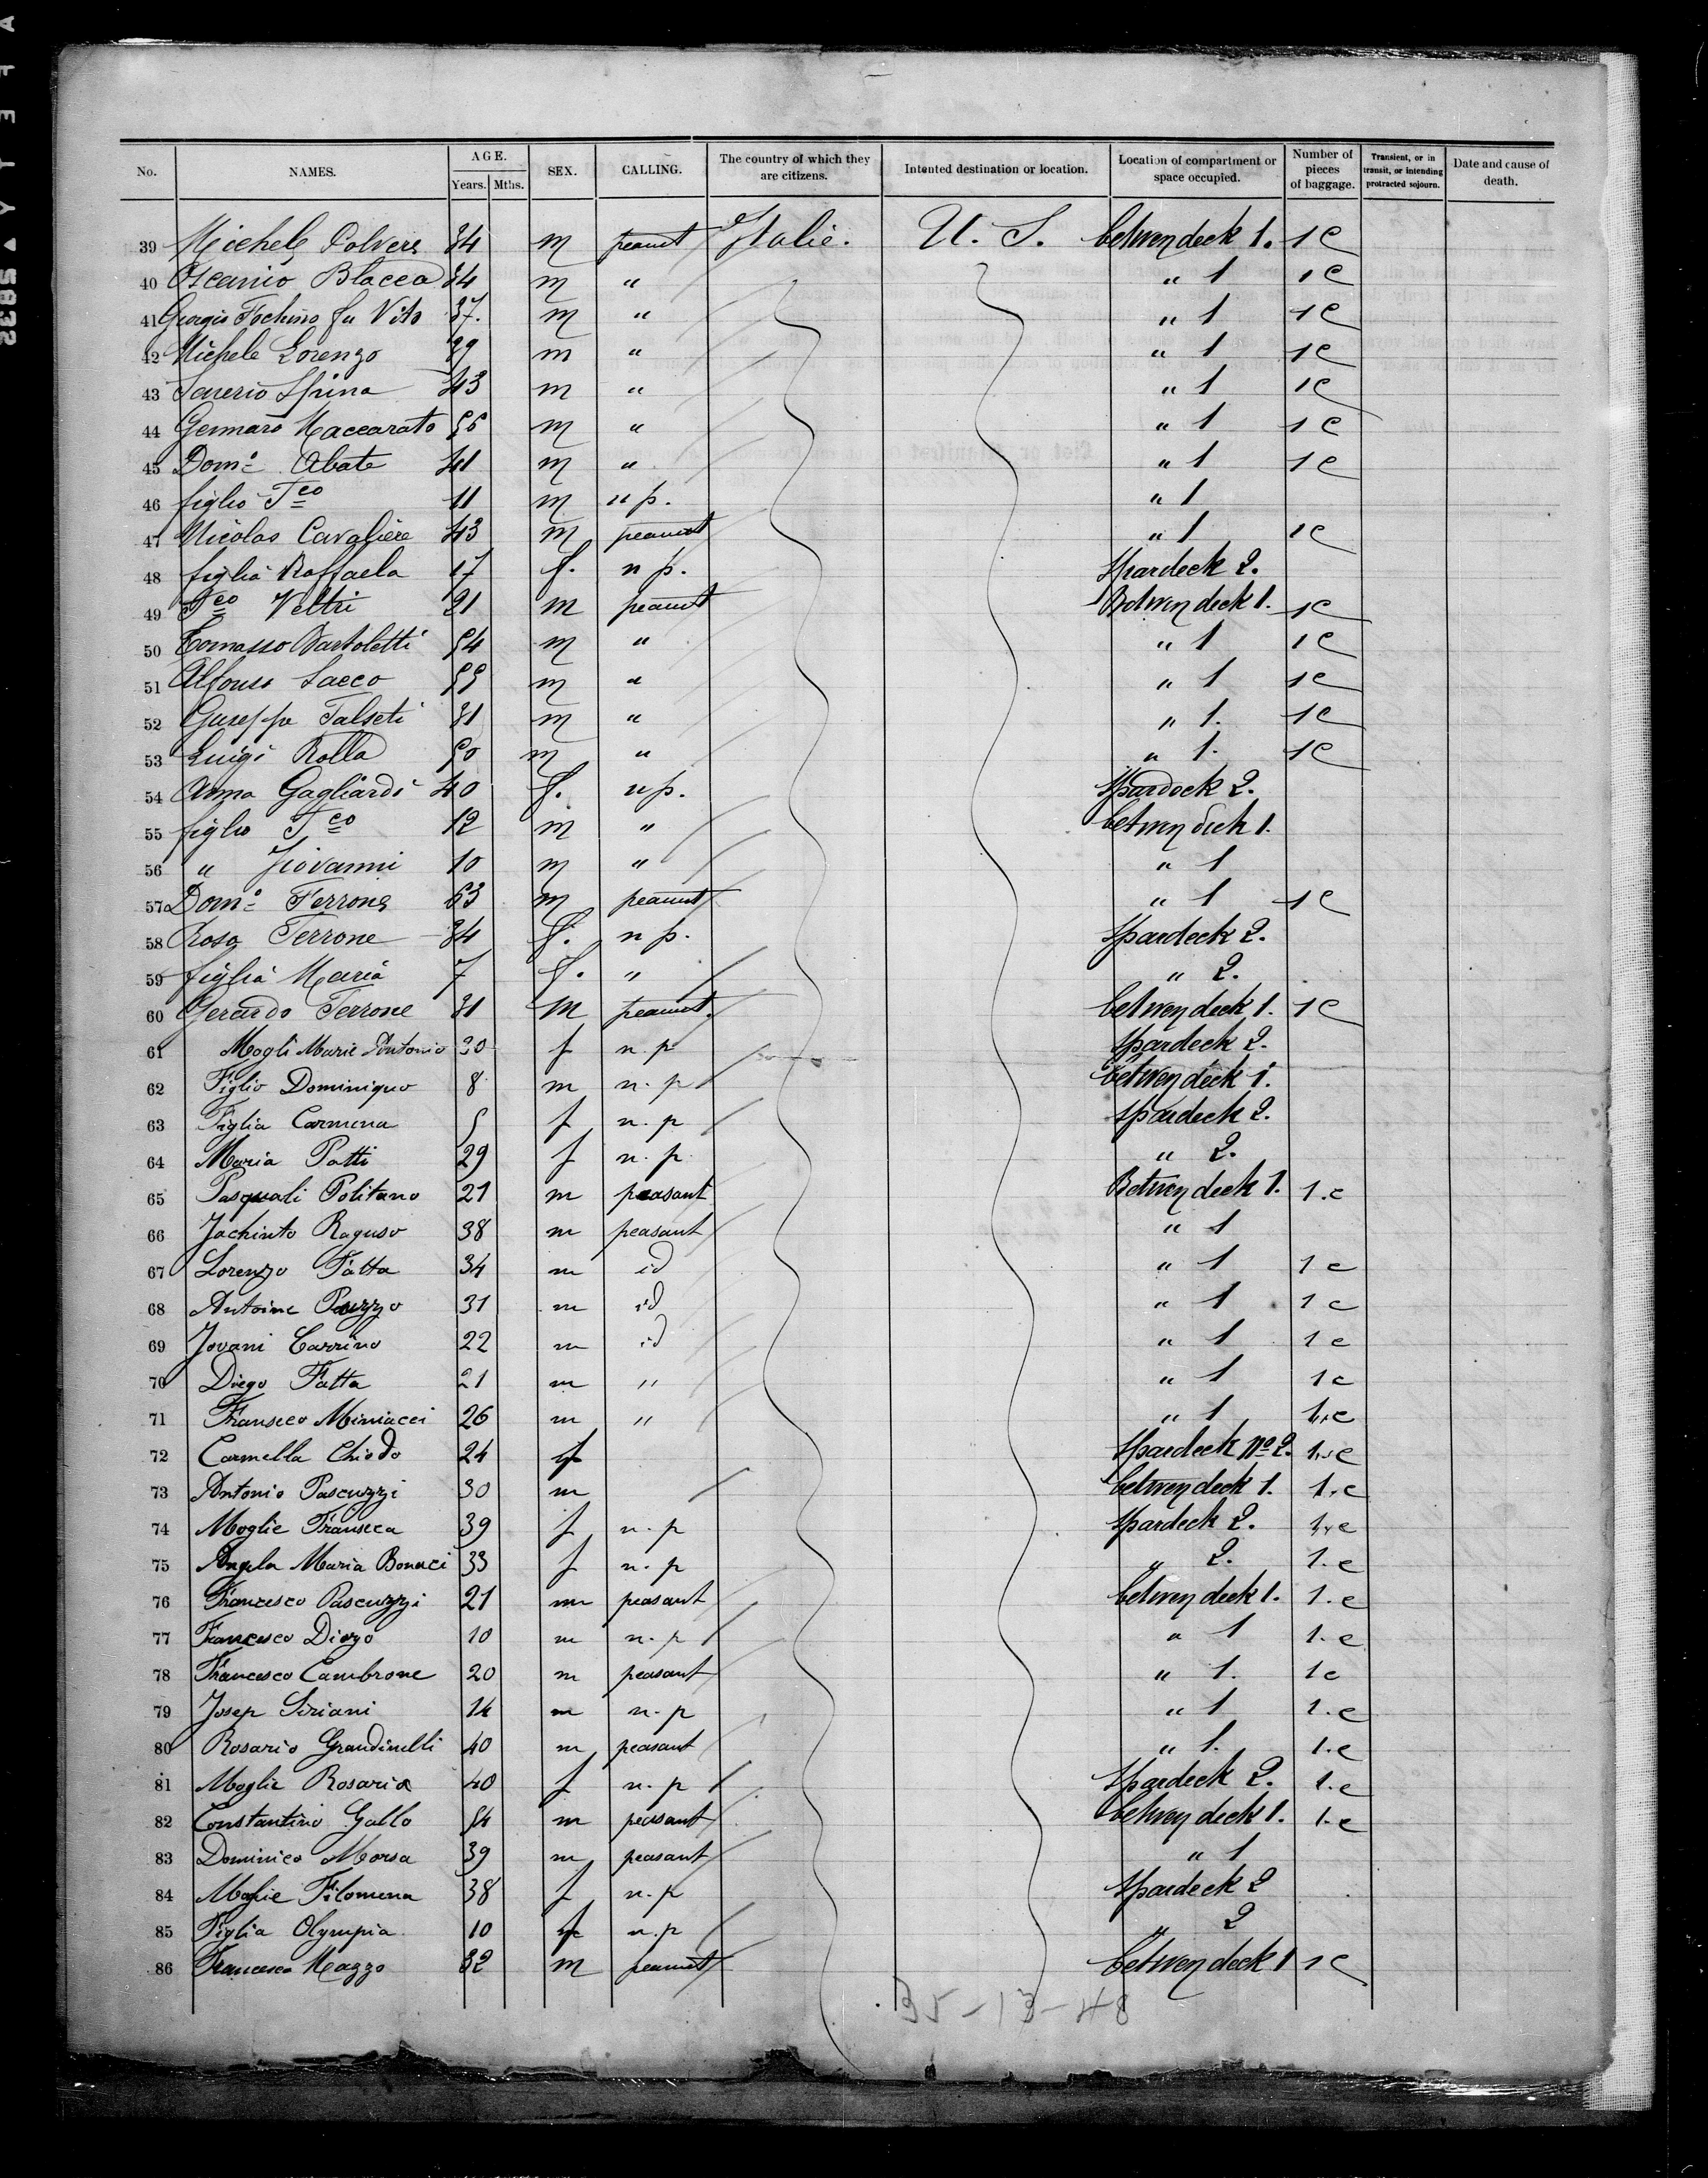 No. NAMES. AGE. Years. Mths. SEX. CALLING. The country of which they are citizens. Intented destination or location. Location of compartment or space occupied. Number of pieces of baggage. Transient, or in transit, or intending protracted sojourn. Date and cause of death.
39 Michele Polvere 34 m peasant Italie. U. S. betwendeck 1. 1 C
40 Oscanio Blacca 34 m " " 1 1 C
41 Giorgio Fochino fu Vito 37. m " " 1 1 C
42 Michele Lorenzo 29 m " " 1 1 C
43 Saverio Spina 43 m " " 1 1 C
44 Gennaro Maccarato 56 m " " 1 1 C
45 Domº Abate 41 m " " 1 1 C
46 figlio Fco 11 m n p. " 1
47 Nicolas Cavaliere 43 m peasant " 1 1 C
48 figlia Raffaela 17 f. n p. Spardeck 2.
49 Fco Veltri 21 m peasant Betwen deck 1. 1 C
50 Tomasso Bartoletti 54 m " " 1 1 C
51 Alfonso Sacco 55 m " " 1 1 C
52 Guseppe Falseti 31 m " " 1. 1 C
53 Luigi Rolla 50 m " " 1. 1 C
54 Anna Gagliardi 40 f. n p. Spardeck 2.
55 figlio Fco 12 m " betwen deck 1.
56 " Giovanni 10 m " " 1
57 Domº Ferrone 63 m peasant " 1 1 C
58 Rosa Ferrone 34 f. n p. Spardeck 2.
59 figlia Maria 7 f. " " 2.
60 Gerardo Ferrone 31 m peasant. betwen deck 1. 1 C
61 Mogli Marie Antonio 30 f n. p Spardeck 2.
62 Figlio Dominiquo 8 m n. p betwen deck 1.
63 Figlia Carmena 5 f n. p Spardeck 2.
64 Maria Patti 29 f n. p. " 2.
65 Pasquali Politano 21 m peasant Betwen deck 1. 1. c
66 Jachinto Raguso 38 m peasant " 1
67 Lorenzo Fatta 34 m id " 1 1 c
68 Antoine Pauzzo 31 m id " 1 1 c
69 Jovani Carrino 22 m id " 1 1 c
70 Diego Fatta 21 m " " 1 1 c
71 Franseco Miniacci 26 m " " 1 1. c
72 Carmella Chiodo 24 f Spardeck No 2. 1. c
73 Antonio Pascuzzi 30 m betwen deck 1. 1. c
74 Moglie Franseca 39 f n. p Spardeck 2. 1. c
75 Angela Maria Bonaci 33 f n. p " 2. 1. c
76 Francesco Pascuzzi 21 m peasant betwen deck 1. 1. c
77 Francesco Diezo 10 m n. p " 1 1. c
78 Francesco Cambrone 20 m peasant " 1. 1 c
79 Josep Siriani 14 m n. p " 1 1. c
80 Rosario Grandinelli 40 m peasant " 1. 1. c
81 Moglie Rosaria 40 f n. p Spardeck 2. 1. c
82 Constantino Gallo 54 m peasant betwen deck 1. 1. c
83 Dominico Morsa 39 m peasant " 1
84 Moglie Filomena 38 f n. p Spardeck 2
85 Figlia Olympia 10 f n. p " 2
86 Francesco Mazzo 32 m peasant betwen deck 1 1 C
35-13-48